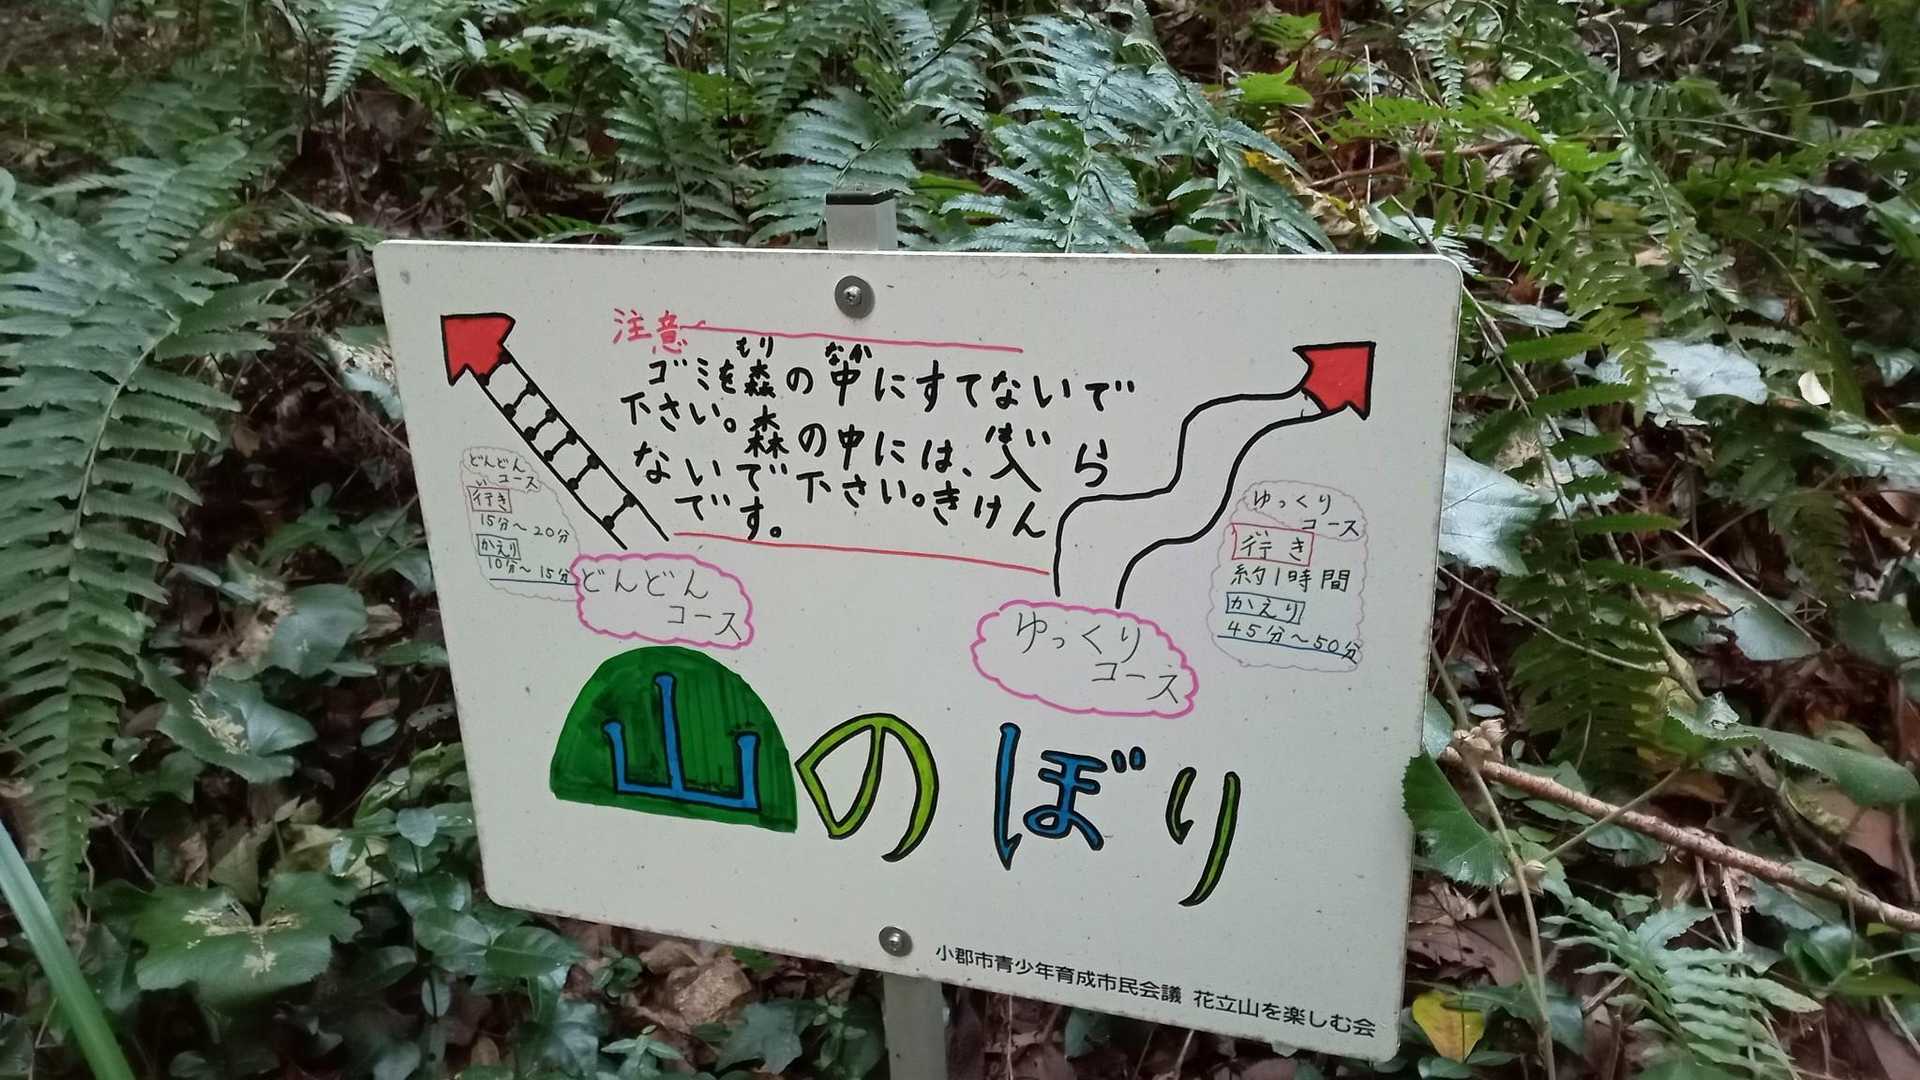 注意
もり なか
ゴミを森の中にすてないで
下さい。森の中には、入ら
はい
ないで下さい。きけん
です。
どんどん
コース
い
行き
15分～20分
かえり
10分～15分
どんどん
コース
ゆっくり
コース
行き
約1時間
かえり
45分～50分
ゆっくり
コース
山のぼり
小郡市青少年育成市民会議 花立山を楽しむ会